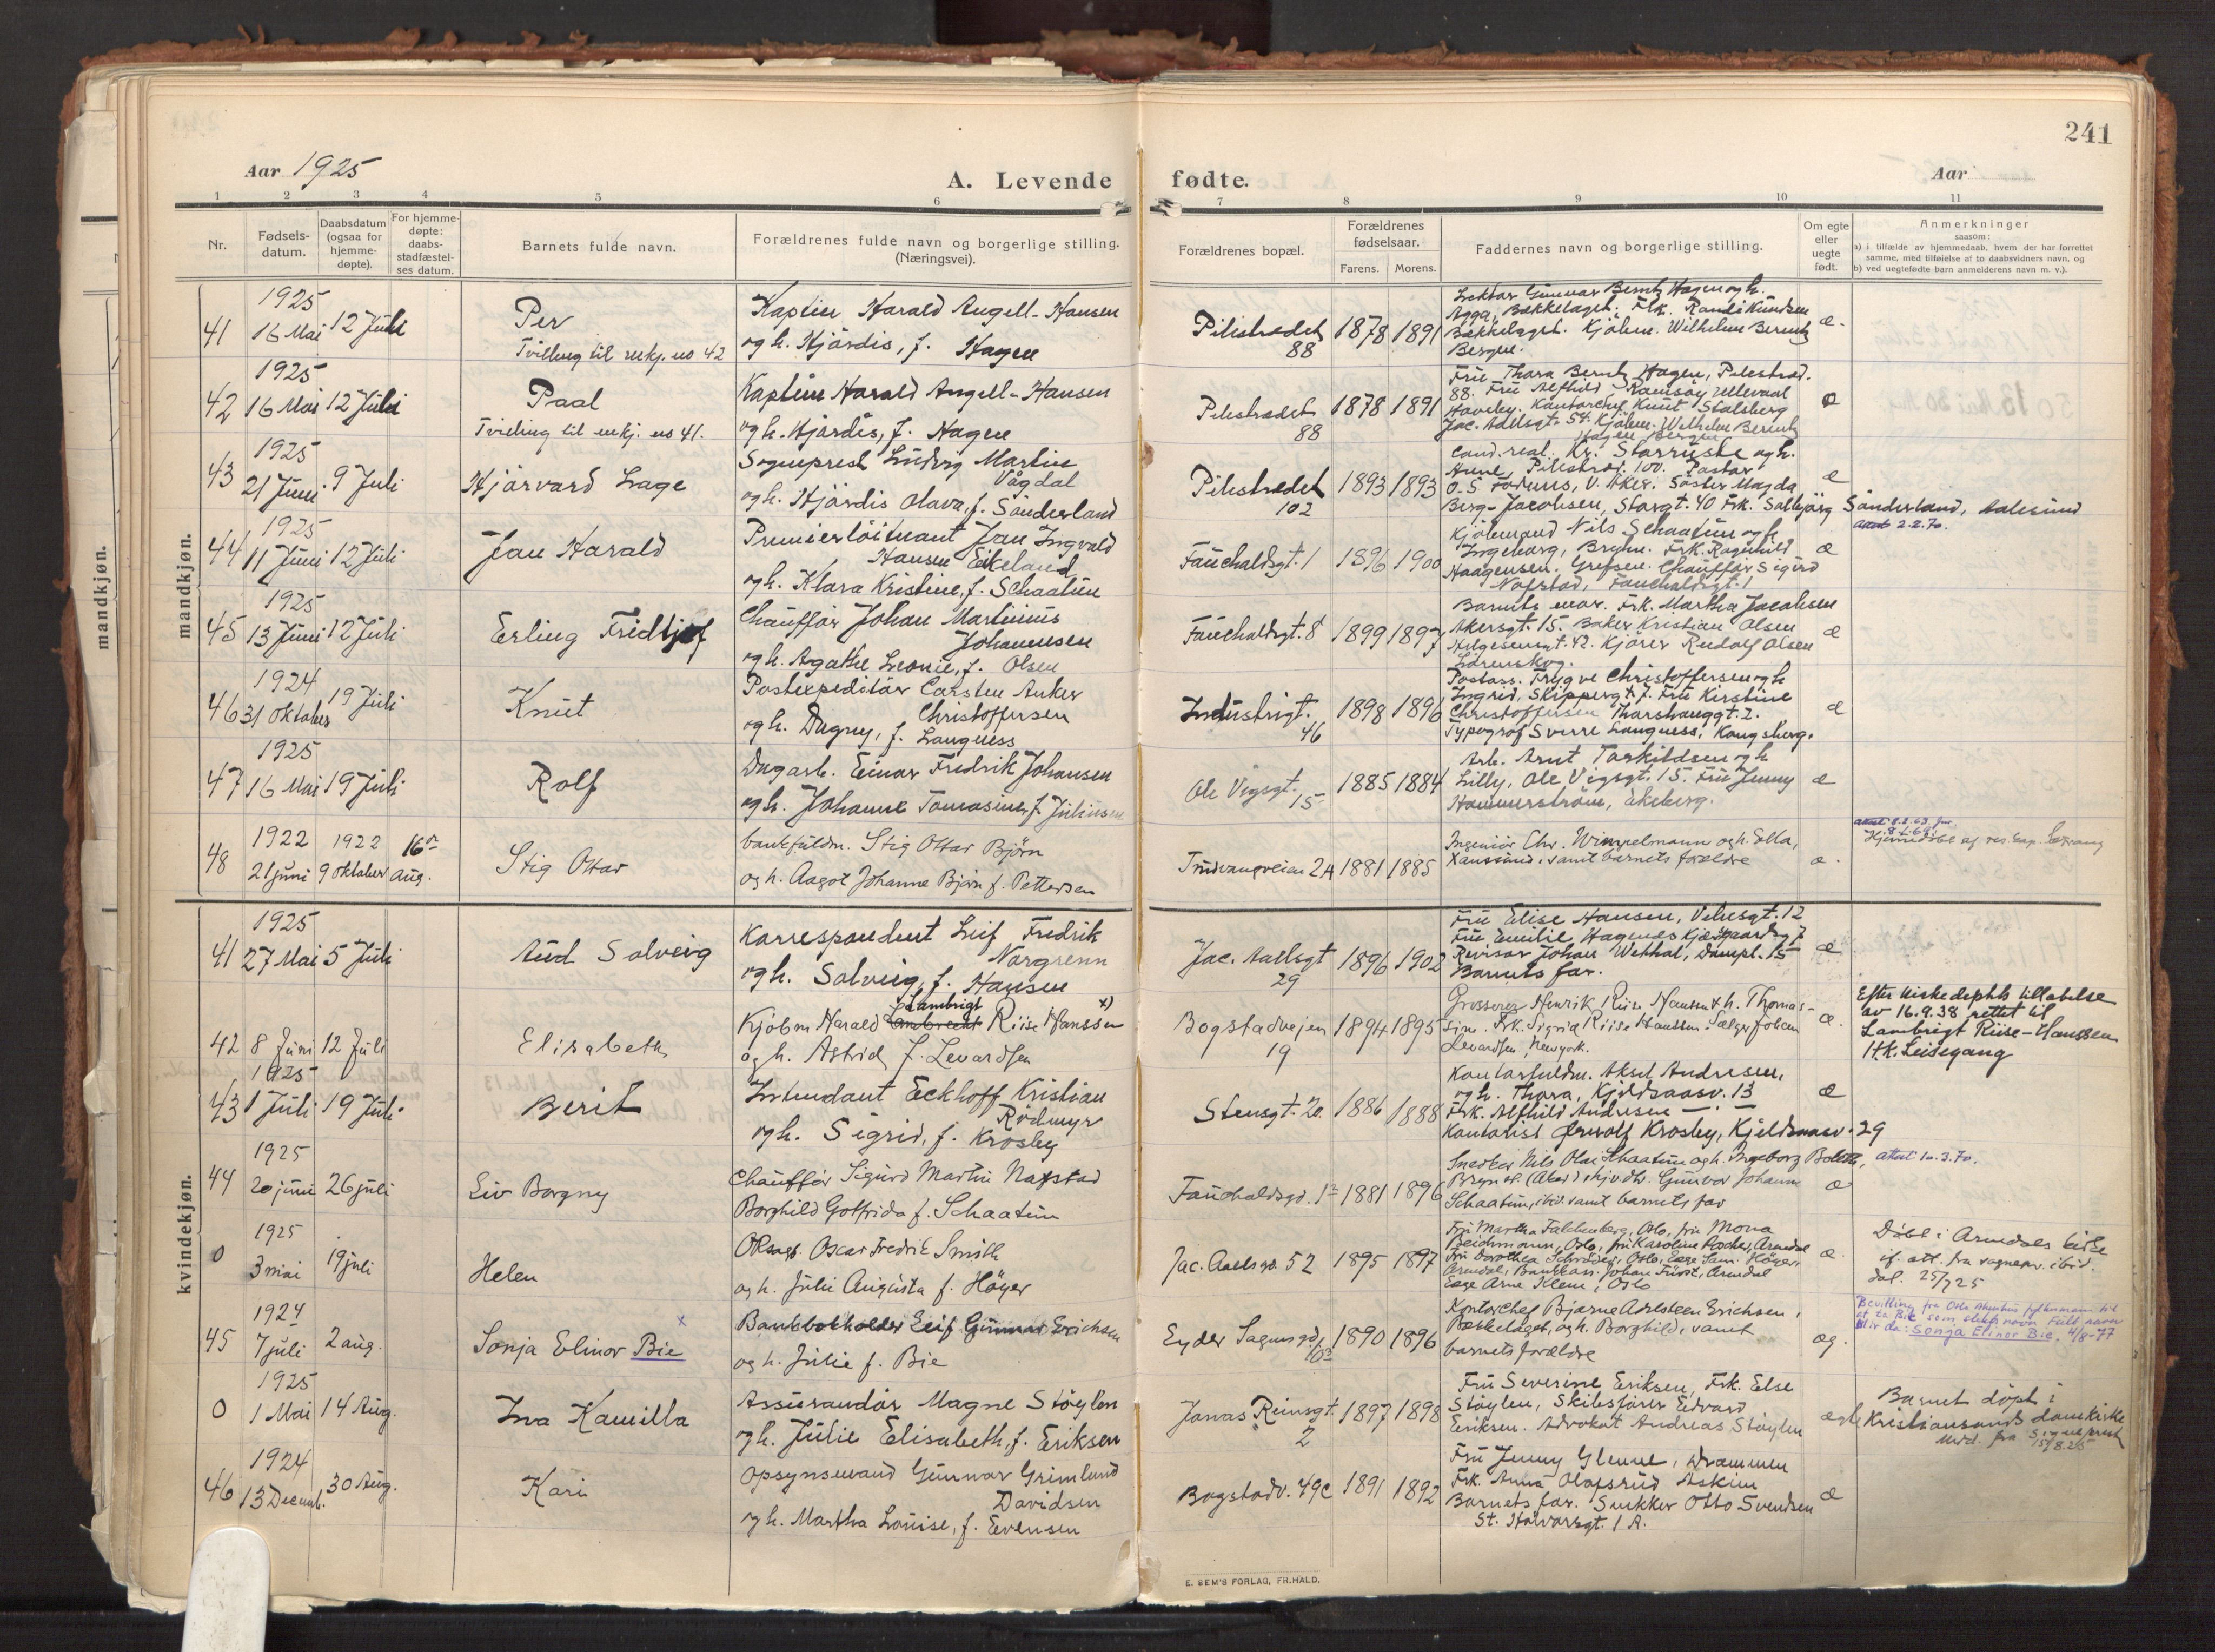 241
Aar 1925
A. Levende fødte.
Aar
1 2 3 4 5 6 7 8 9 10 11
Nr.
Fødsels-
datum.
Daabsdatum
(ogsaa for
hjemme-
døpte).
For hjemme-
døpte:
daabs-
stadfæstel-
ses datum.
Barnets fulde navn.
Forældrenes fulde navn og borgerlige stilling.
(Næringsvei).
Forældrenes bopæl.
Forældrenes
fødselsaar.
Farens. Morens.
Faddernes navn og borgerlige stilling.
Om egte
eller
uegte
født.
Anmerkninger
saasom:
a) i tilfælde av hjemmedaab, hvem der har forrettet
samme, med tilføielse af to daabsvidners navn, og
b) ved uegtefødte barn anmelderens navn m. v.).
mandkjøn.
mandkjøn.
1925
41 16 Mai 12 Juli
Per
Tvilling til mkj. no 42
Kaptein Harald Angell-Hansen
og h. Hjördis, f. Hagen
Pilestrædet
88
1878 1891
Lektor Gunnar Berntz Hagen og h.
Agga, Bækkelaget. Frk. Randi Knudsen
Bækkelaget. Kjøbm. Wilhelm Berentz
Bergen.
æ.
1925
42 16 Mai 12 Juli
Paal
Tvilling til mkj. no 41.
Kaptein Harald Angell-Hansen
og h. Hjördis, f. Hagen
Pilestrædet
88
1878 1891
Fru Thora Berntz Hagen, Pilestræd.
88. Fru Alfhild Ramsøy Ullevaal
Haveby. Kontorchef Knut Stalsberg
Jac. Aallsgt. 54. Kjøbm. Wilhelm Berentz
Hagen Bergen
æ
1925
43 21 Juni 9 Juli
Hjörvard Lage
Sogneprest Ludvig Martin
Vågdal
og h. Hjördis Olava, f. Sönderland
Pilestrædet
102
1893 1893
Cand. real. Kr. Starruste og h.
Anne, Pilestræd. 100. Pastor
O. S. Fodnæs, V. Aker. Söster Magda
Berg-Jacobsen, Storgt. 40 Frk. Solbjörg Sönderland, Aalesund
æ
Attest 2.2.70.
1925
44 11 Juni 12 Juli
Jan Harald
Premierlöitnant Jan Ingvald
Hansen Eikeland
og h. Klara Kristine, f. Schaatun
Fauchaldsgt. 1
1896 1900
Kjöbmand Nils Schaatun og h.
Ingeborg, Bryn. Frk. Ragnhild
Haagensen. Grefsen. Chauffør Sigurd
Nafstad, Fauchaldsgt. 1
æ
1925
45 13 Juni 12 Juli
Erling Fridtjof
Chauffør Johan Martinius
Johannesen
og h. Agathe Leonie, f. Olsen
Fauchaldsgt. 8
1899 1897
Barnets mor. Frk. Martha Jacobsen
Akersgt. 15. Baker Kristian Olsen
Helgesensgt. 42. Kjører Rudolf Olsen
Lörenskog.
æ
1924
46 31 Oktober 19 Juli
Knut
Postexpeditör Carsten Anker
Christoffersen
og h. Dagny, f. Langness
Industrigt.
46
1898 1896
Postass. Trygve Christoffersen og h
Ingrid, Skippergt. 7. Fru Kirstine
Christoffersen Thorshauggt. 2.
Typograf Sverre Langness, Kongsberg.
æ
1925
47 16 Mai 19 Juli
Rolf
Dagarb. Einar Fredrik Johansen
og h. Johanne Tomasine, f. Juliussen
Ole Vigsgt.
15
1885 1884
Arb. Arnt Torkildsen og h
Lilly, Ole Vigsgt. 15. Fru Jenny
Hammerström, Ekeberg.
æ
1922 1922 16de
48 21 juni 9 oktober Aug.
Stig Ottar
bankfuldm. Stig Ottar Björn
og h. Aagot Johanne Björn f. Pettersen
Trudvangveien 2A
1881 1885
Ingeniör Chr. Wimpelmann og h. Ella,
Xanssund, samt barnets forældre
æ.
Hjemmedöbt af res. kap.
kvindekjøn.
1925
41 27 Mai 5 Juli
Aud Solveig
Korrespondent Leif Fredrik
Norgrenn
og h. Solveig, f. Hansen
Jac. Aallsgt
29
1896 1902
Fru Elise Hansen, Vibesgt. 12
Fru Emilie Hagenæs Kjedgaardsg 7
Revisor Johan Wethal, Dampl. 15
Barnets far.
æ
42 8 Juni 12 Juli
Elisabeth
Kjöbm Harald Lambrecht Lambrigt Riise Hanssen x)
og h. Astrid f. Levardsen
Bogstadvejen
19
1894 1895
Grosserer Henrik Riise Hanssen & h. Thomas-
sine. Frk. Sigrid Riise Hanssen. Sælger Johan
Levardsen, Newyork.
æ.
Efter Kirkedepts tillatelse
av 16.9.38 rettet til
Lambrigt Riise-Hanssen
H.K. Leisegang
1925
43 1 Juli 19 Juli
Berit
Intendant Eckhoff Kristian
Rödmyr
og h. Sigrid, f. Krosby
Stensgt. 20
1886 1888
Kontorfuldm. Aksel Andresen,
og h. Thora, Kjeldsaasv. 13
Frk. Alfhild Andresen — . —
Kontorist Krosby, Kjeldsaasv. 29
æ
1925
44 20 juni 26 juli
Liv Borgny
Chauffør Sigurd Martin Nafstad
Borghild Gotfrida f. Schaatun
Fauchaldsgd. 1
1881 1896
Snedker Nils Olai Schaatun og h. Ingeborg Bolette,
Bryn st. (Aker) Gunvor Johanne
Schaatun, ibid. samt barnets far
æ
Attest 10.3.70.
1925
0 3 mai 19 juli
Helen
ORsagf. Oscar Fredrik Smith
og h. Julie Augusta f. Höyer
Jac. Aallsgd. 52
1895 1897
Fru Martha Falchenberg, Oslo, fru Mona
Beichmann, Oslo, fru Karoline Roche, Arendal
fru Dorothea Schröder, Oslo, Sam. Höyer,
Arendal, Bankkass. Johan Fürst, Arendal
Arne Klem, Oslo
æ.
Döbt i Arendals kirke
if. att. fra sognepr. ibid.
dat. 25/7 25
1924
45 7 juli 2 aug.
Sonja Elinor Bie x
Bankbokholder Leif Gunnar Erichsen
og h. Julie f. Bie
Eyder Sagensgd.
10
1890 1896
Kontorchef Bjarne Adelsteen Erichsen,
Bækkelaget, og h. Borghild, samt
barnets forældre
æg.
Bevilling fra Oslo Akershus fylkesmann til
at ta Bie som slektsnavn Fullt navn
blir da: Sonja Elinor Bie. 4/8-77
1925
0 1 Mai 14 Aug.
Iva Kamilla
Assurandör Magne Stöylen
og h. Julie Elisabeth, f. Eriksen
Jonas Reinsgt.
2
1897 1898
Fru Severine Eriksen, Frk. Else
Stöylen, Skibsförer Edvard
Eriksen. Advokat Andreas Stöylen
ægte
Barnet döpt i
Kristiansands domkirke
Medd. fra Sogneprest
15/8.25
1924
46 13 Decemb. 30 Aug.
Kari
Opsynsmand Gunnar Grimlund
Davidsen
og h. Martha Louise, f. Evensen
Bogstadv. 49c
1891 1892
Fru Jenny Glenne, Drammen
Frk. Anna Olafsrud Askim
Barnets far. Snekker Otto Svendsen
St. Halvardsgt. 1 A.
æ
E. SEM'S FORLAG, FR.HALD.